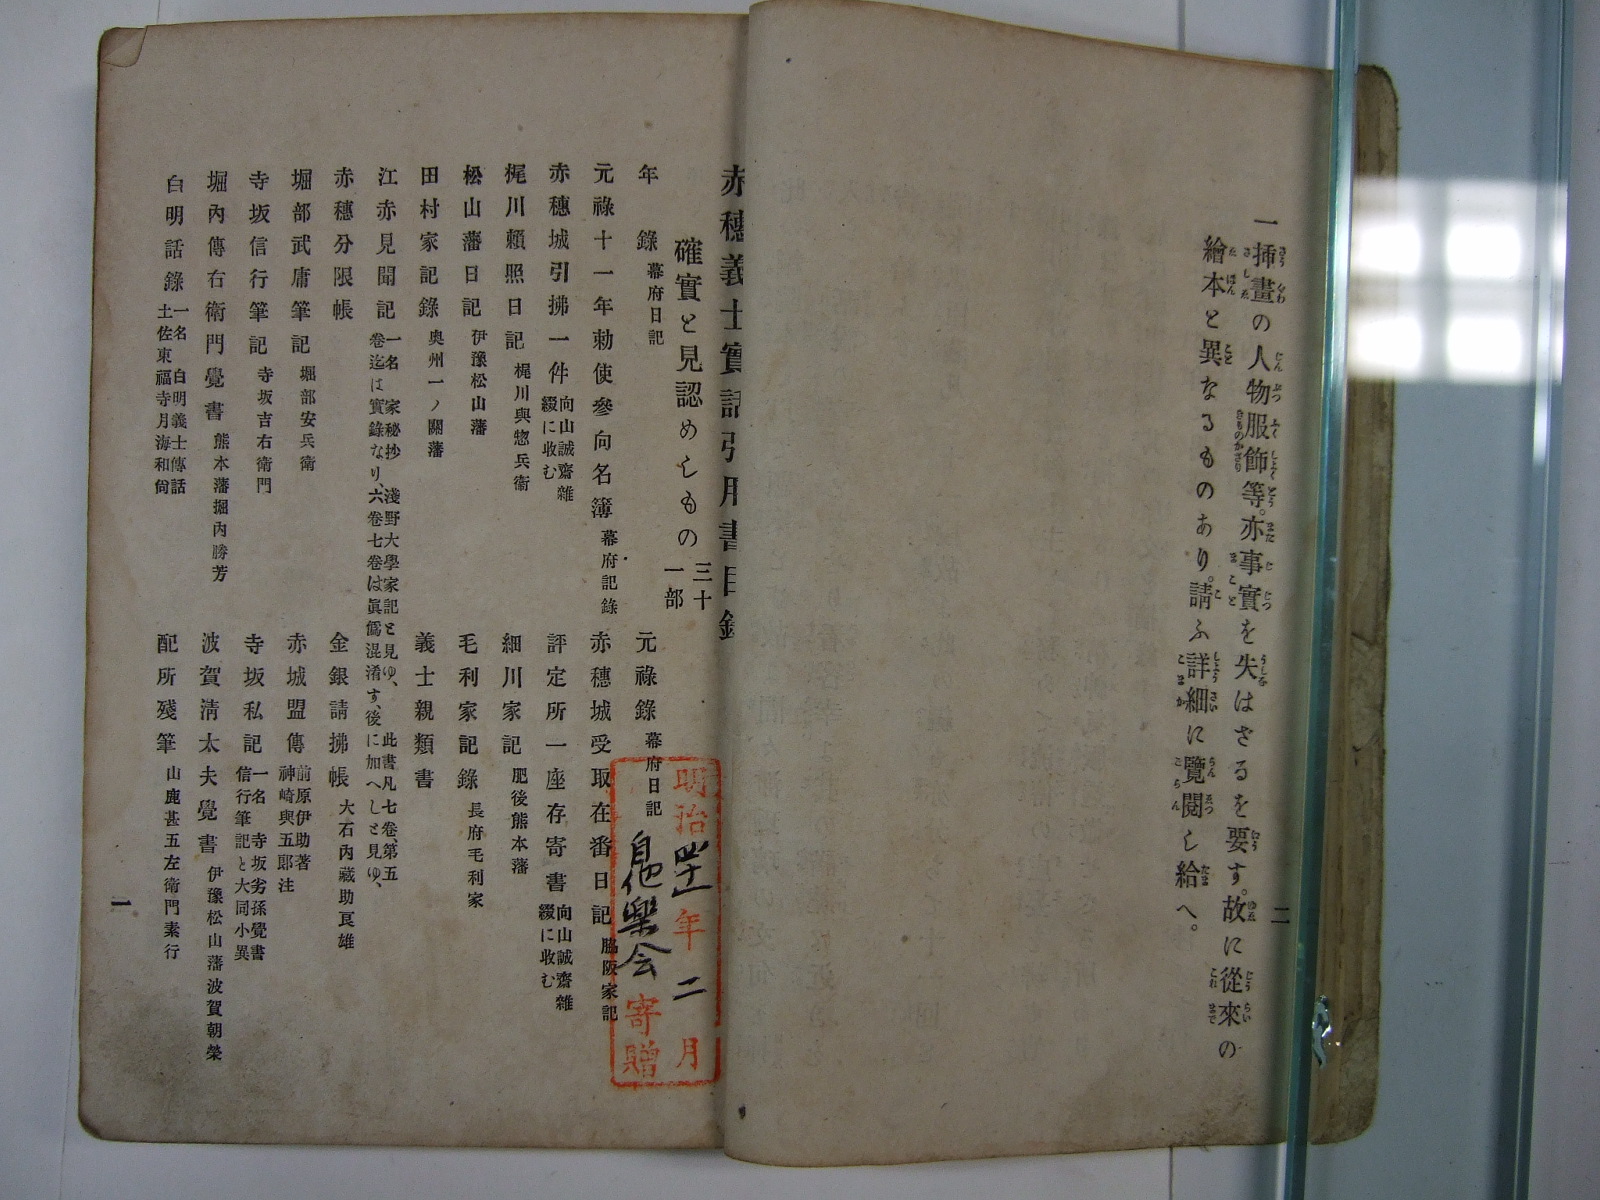 二
一挿畫の人物服飾等。亦事實を失はさるを要す。故に從來の
繪本と異なるものあり。請ふ詳細に覽閲し給へ。
赤穗義士實話引用書目錄
確實と見認めしもの 三十一部
年錄 幕府日記
元祿錄 幕府日記
元祿十一年勅使參向名簿 幕府記錄
赤穗城受取在番日記 脇阪家記
赤穗城引拂一件 向山誠齋雜綴に收む
評定所一座存寄書 向山誠齋雜綴に收む
梶川賴照日記 梶川與惣兵衞
細川家記 肥後熊本藩
松山藩日記 伊豫松山藩
毛利家記錄 長府毛利家
田村家記錄 奧州一ノ關藩
義士親類書
江赤見聞記 一名 家秘抄 淺野大學家記と見ゆ、此書凡七卷、第五
卷迄は實錄なり、六卷七卷は眞僞混淆す、後に加へしと見ゆ、
赤穗分限帳
金銀請拂帳 大石內藏助良雄
堀部武庸筆記 堀部安兵衛
赤城盟傳 前原伊助著 神崎與五郎注
寺坂信行筆記 寺坂吉右衛門
寺坂私記 一名 寺坂劣孫覺書 信行筆記と大同小異
堀內傳右衛門覺書 熊本藩堀內勝芳
波賀淸太夫覺書 伊豫松山藩波賀朝榮
白明話錄 一名 白明義士傳話 土佐東福寺月海和尙
配所殘筆 山鹿甚五左衛門素行
一
明治四十一年二月
自他樂会寄贈